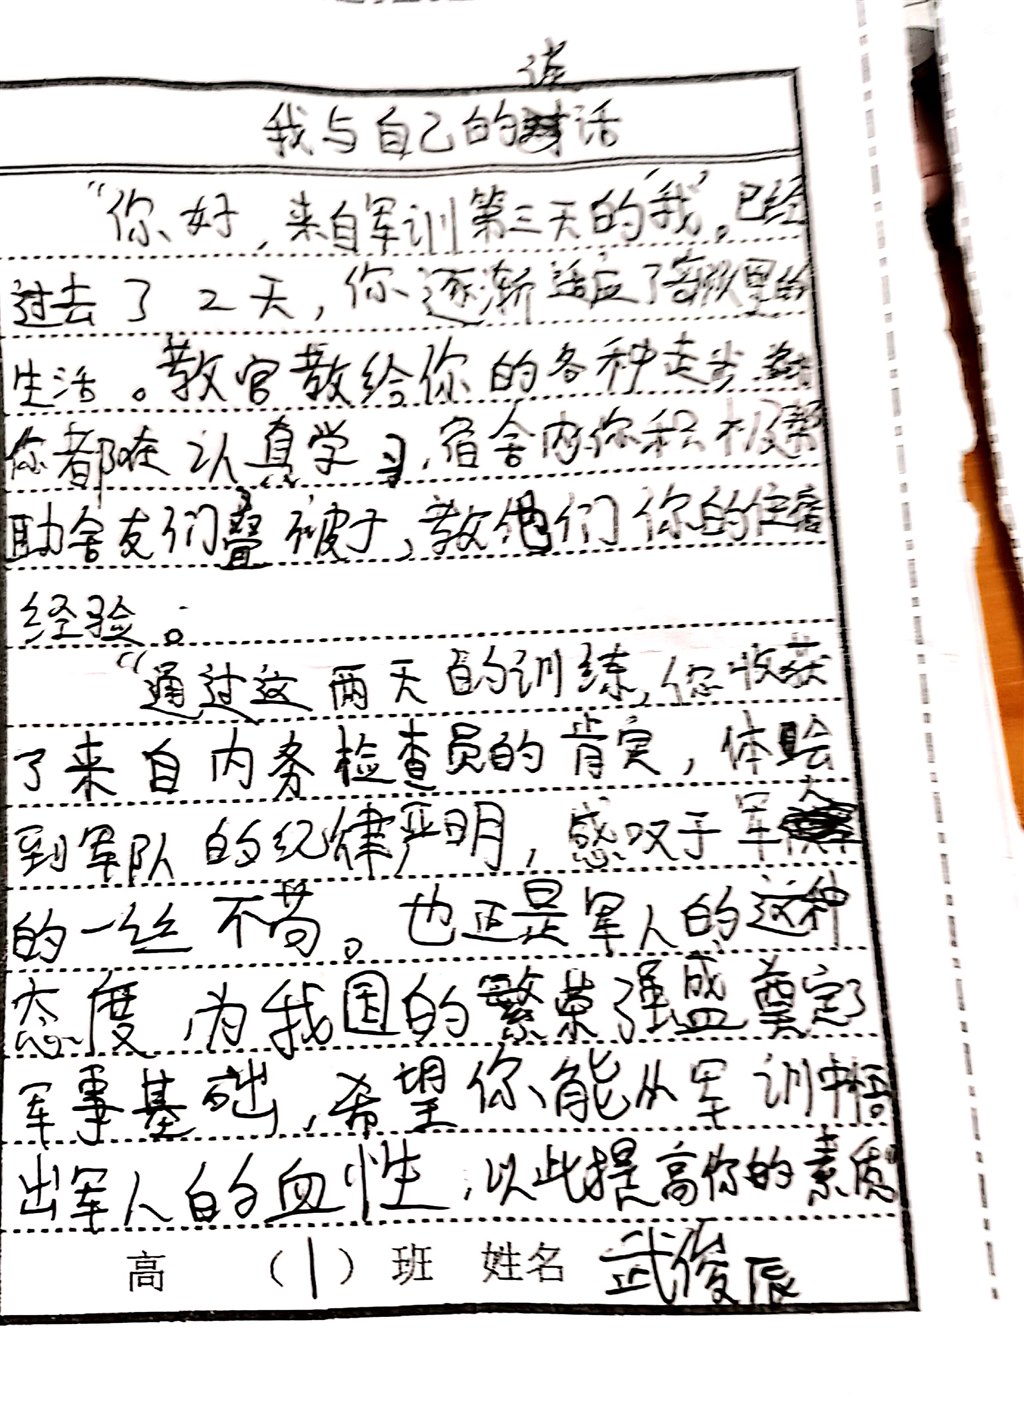 我与自己的谈话
“你好，来自军训第三天的‘我’。已经
过去了2天，你逐渐适应了部队里的
生活。教官教给你的各种走步
你都在认真学习，宿舍内你积极帮
助舍友们叠被子，教他们你的住宿
经验。
“通过这两天的训练，你收获
了来自内务检查员的肯定，体验
到军队的纪律严明，感叹于军人
的一丝不苟。也正是军人的这种
态度，为我国的繁荣强盛奠定了
军事基础，希望你能从军训中悟
出军人的血性，以此提高你的素质
高（1）班 姓名 武俊辰